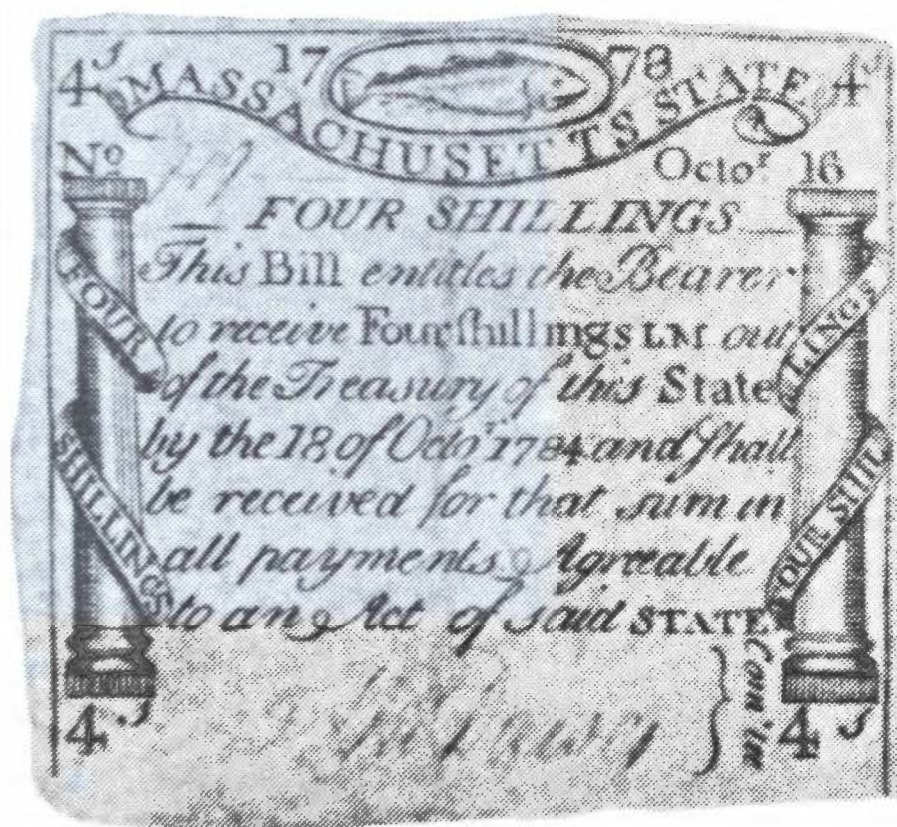 4s 17 78 4s
MASSACHUSETTS STATE
No Octor. 16
FOUR SHILLINGS
This Bill entitles the Bearer
to receive Fourſhillings LM out
of the Treasury of this State
by the 18 of Octor. 1784 and ſhall
be received for that sum in
all payments Agreeable
to an Act of said STATE
FOUR
SHILLINGS
LINGS
FOUR SHIL
Com'tee
4s 4s